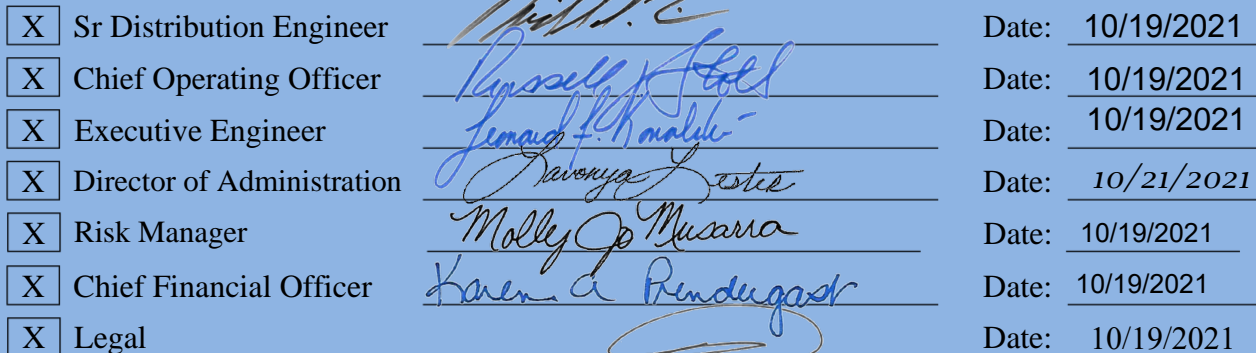 X Sr Distribution Engineer Date: 10/19/2021
X Chief Operating Officer Russell Date: 10/19/2021
X Executive Engineer Leonard F. Date: 10/19/2021
X Director of Administration Lavonya Lester Date: 10/21/2021
X Risk Manager Molly Jo Musarra Date: 10/19/2021
X Chief Financial Officer Karen A Prendergast Date: 10/19/2021
X Legal Date: 10/19/2021